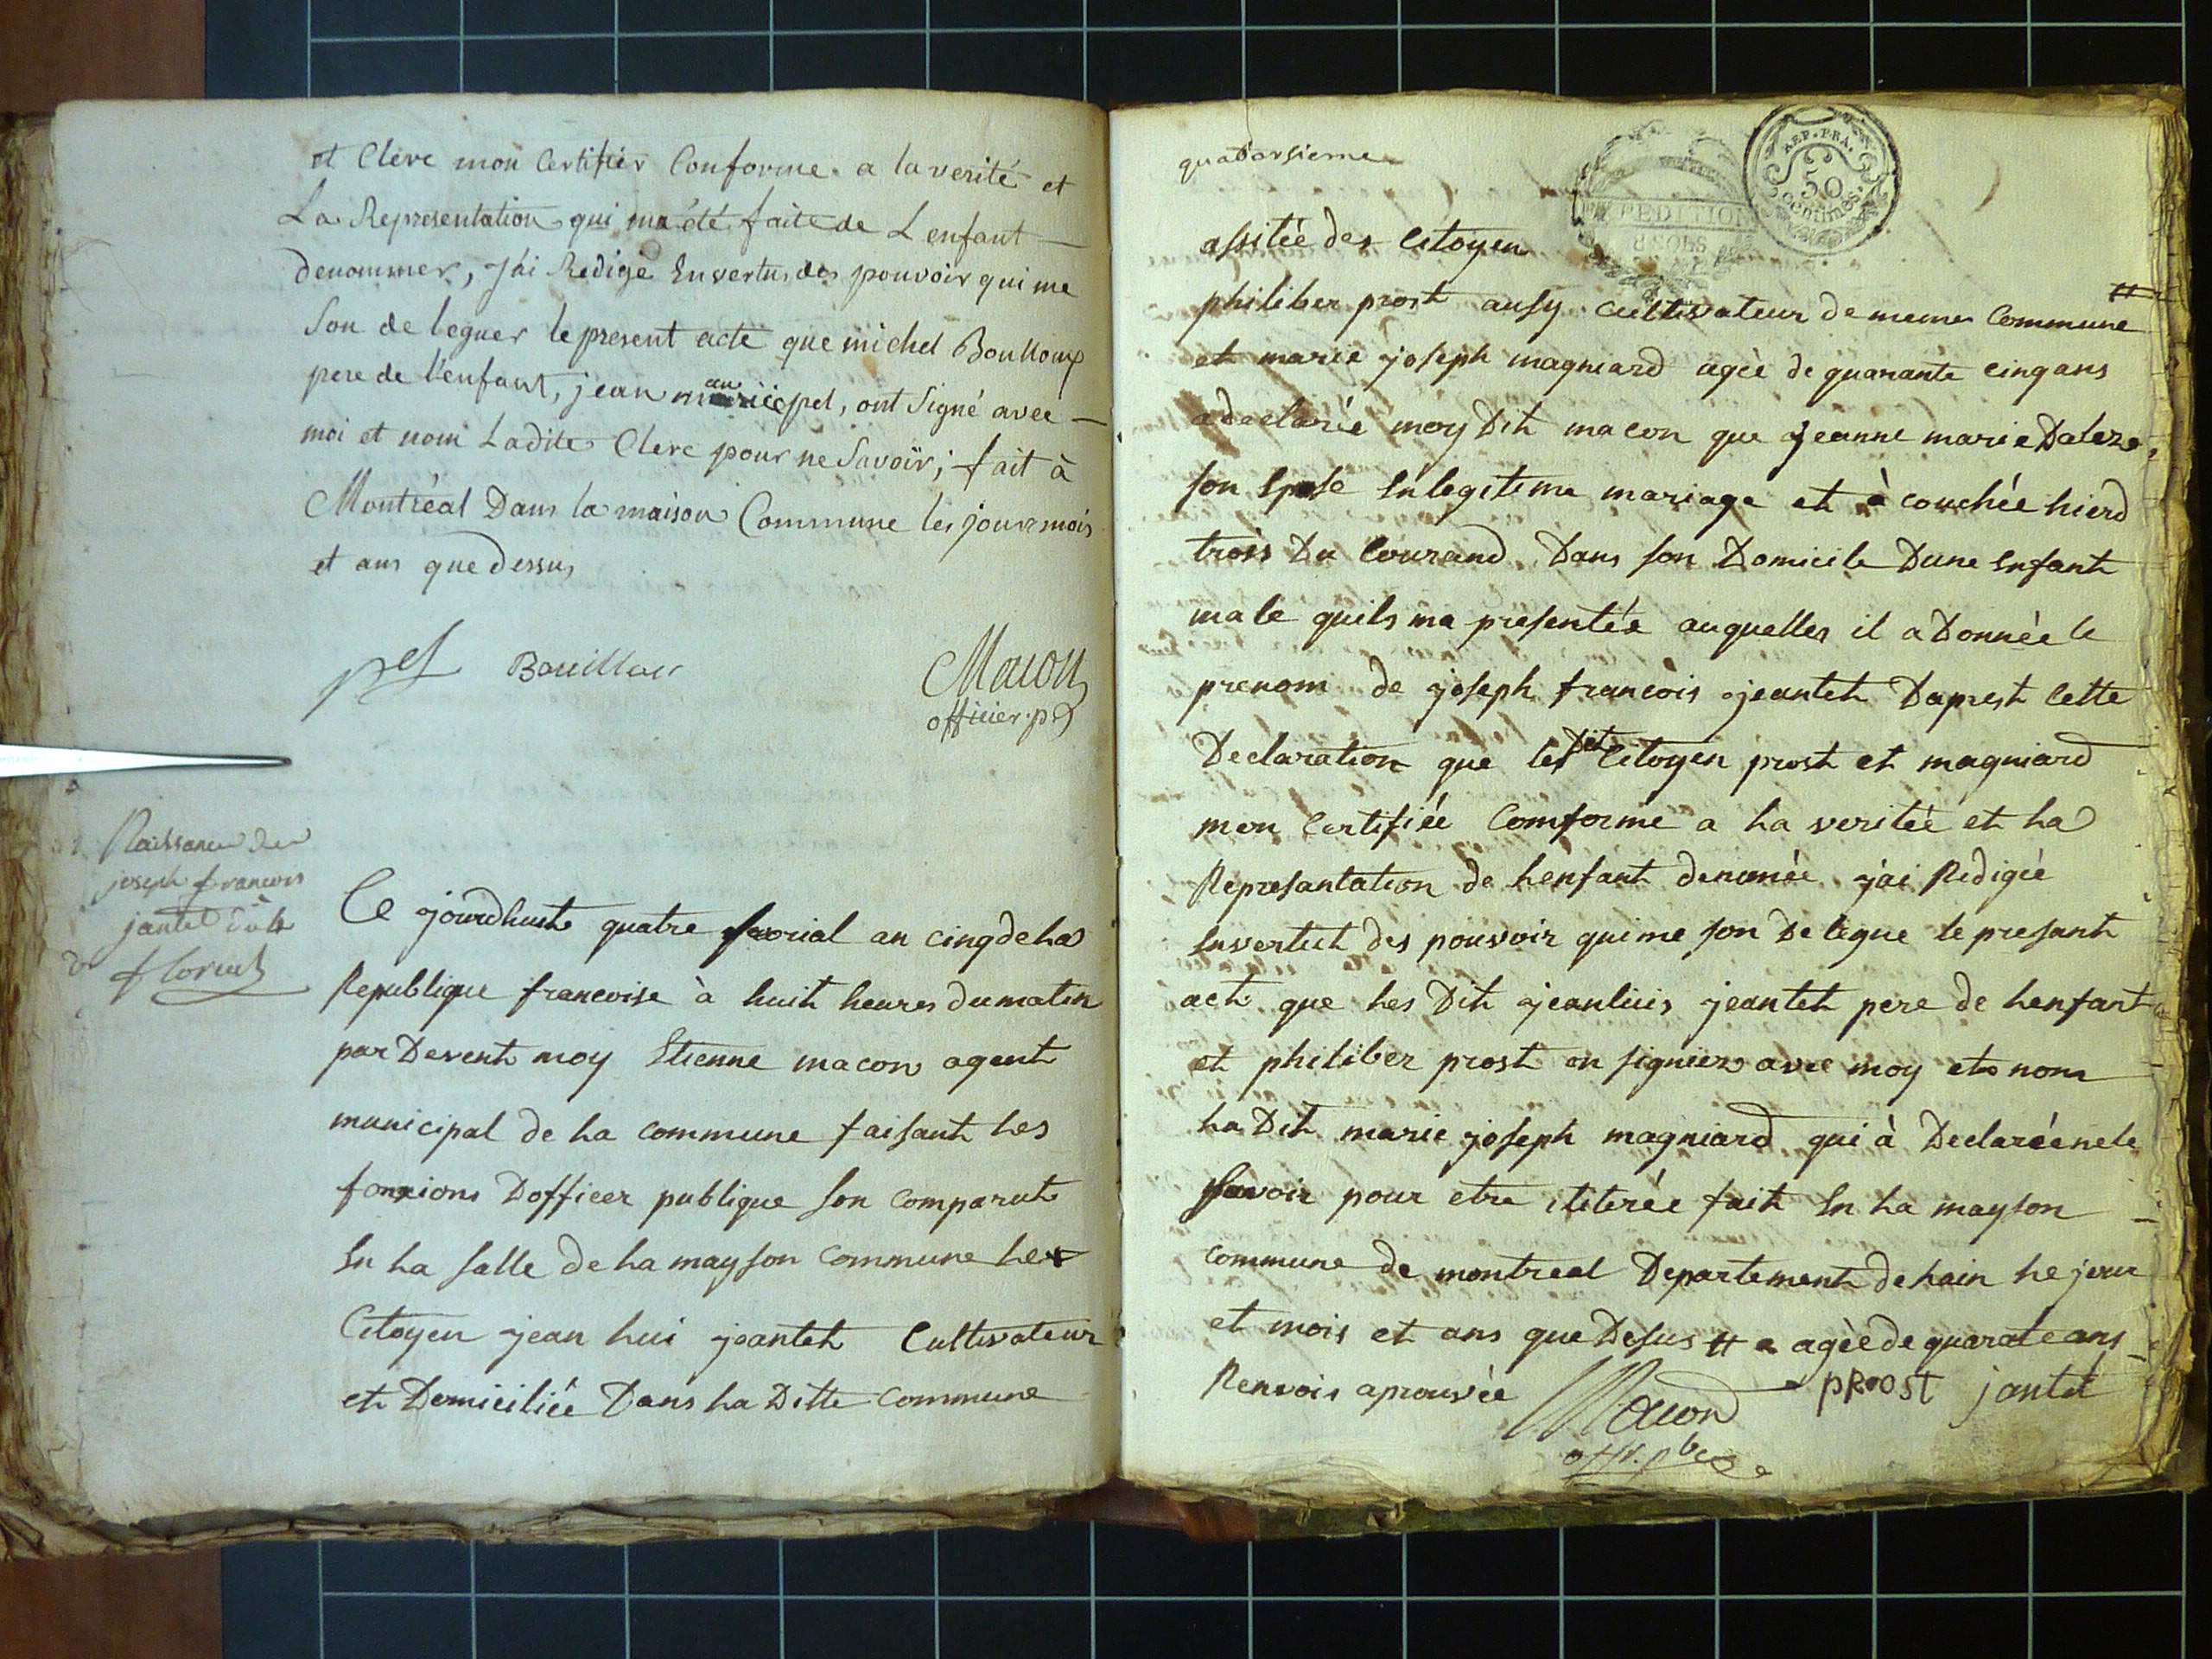 et Clerc mon Certifier Conforme a la verité et
La Representation qui ma été faite de L enfant
denommer, J'ai Redigé En vertus des pouvoir qui me
son de leguer le present acte que michel Boulloux
pere de l'enfant, jean pet, ont Signé avec
moi et nom Ladite Clerc pour ne Savoir; fait à
Montréal Dans la maison Commune les jour mois
et ans que dessus
Macon
officier p
Naissance de
joseph francois
jantet
Ce jourdhuit quatre an cinq de ha
Republique francoise à huit heures du matin
par Devent moy Etienne macon agent
municipal de ha commune faisant hes
fonxions Dofficer publique son comparut
En ha salle de ha mayson commune he
Citoyen jean hui jeantet Cultivateur
et Domiciliée Dans ha Ditte commune
quatorsieme
EXPEDITION
8 SOLS
REP. FRA.
50
centimes
assitée des Citoyen
philiber prost ausy cultivateur de meme Commune #
et marie joseph magniard agée de quarante cinq ans
a declarée moy Dit macon que jeanne marie
son Epose En legitime mariage et à couchée hierd
trois Du Courand Dans son Domicile Dune Enfant
male quils ma presentée auquelles il a Donnée le
prenom de joseph francois jeantet Daprest Cette
Declaration que les Dit Citoyen prost et magniard
mon Certifiée Comforme a ha veritée et ha
Represantation de henfant denomée jai Redigée
Envertut des pouvoir qui me son De legue le presant
act que hes Dit jeanluis jeantet pere de henfant
et philiber prost on signier avec moy et nom
ha Dit marie joseph magniard qui à Declarée nele
savoir pour etre iliterée fait En ha mayson
commune de montreal Departement de hain he jour
et mois et ans que Desus # agée de quarate ans
Renvois aprouvée Macon PROST jantet
off. pbc